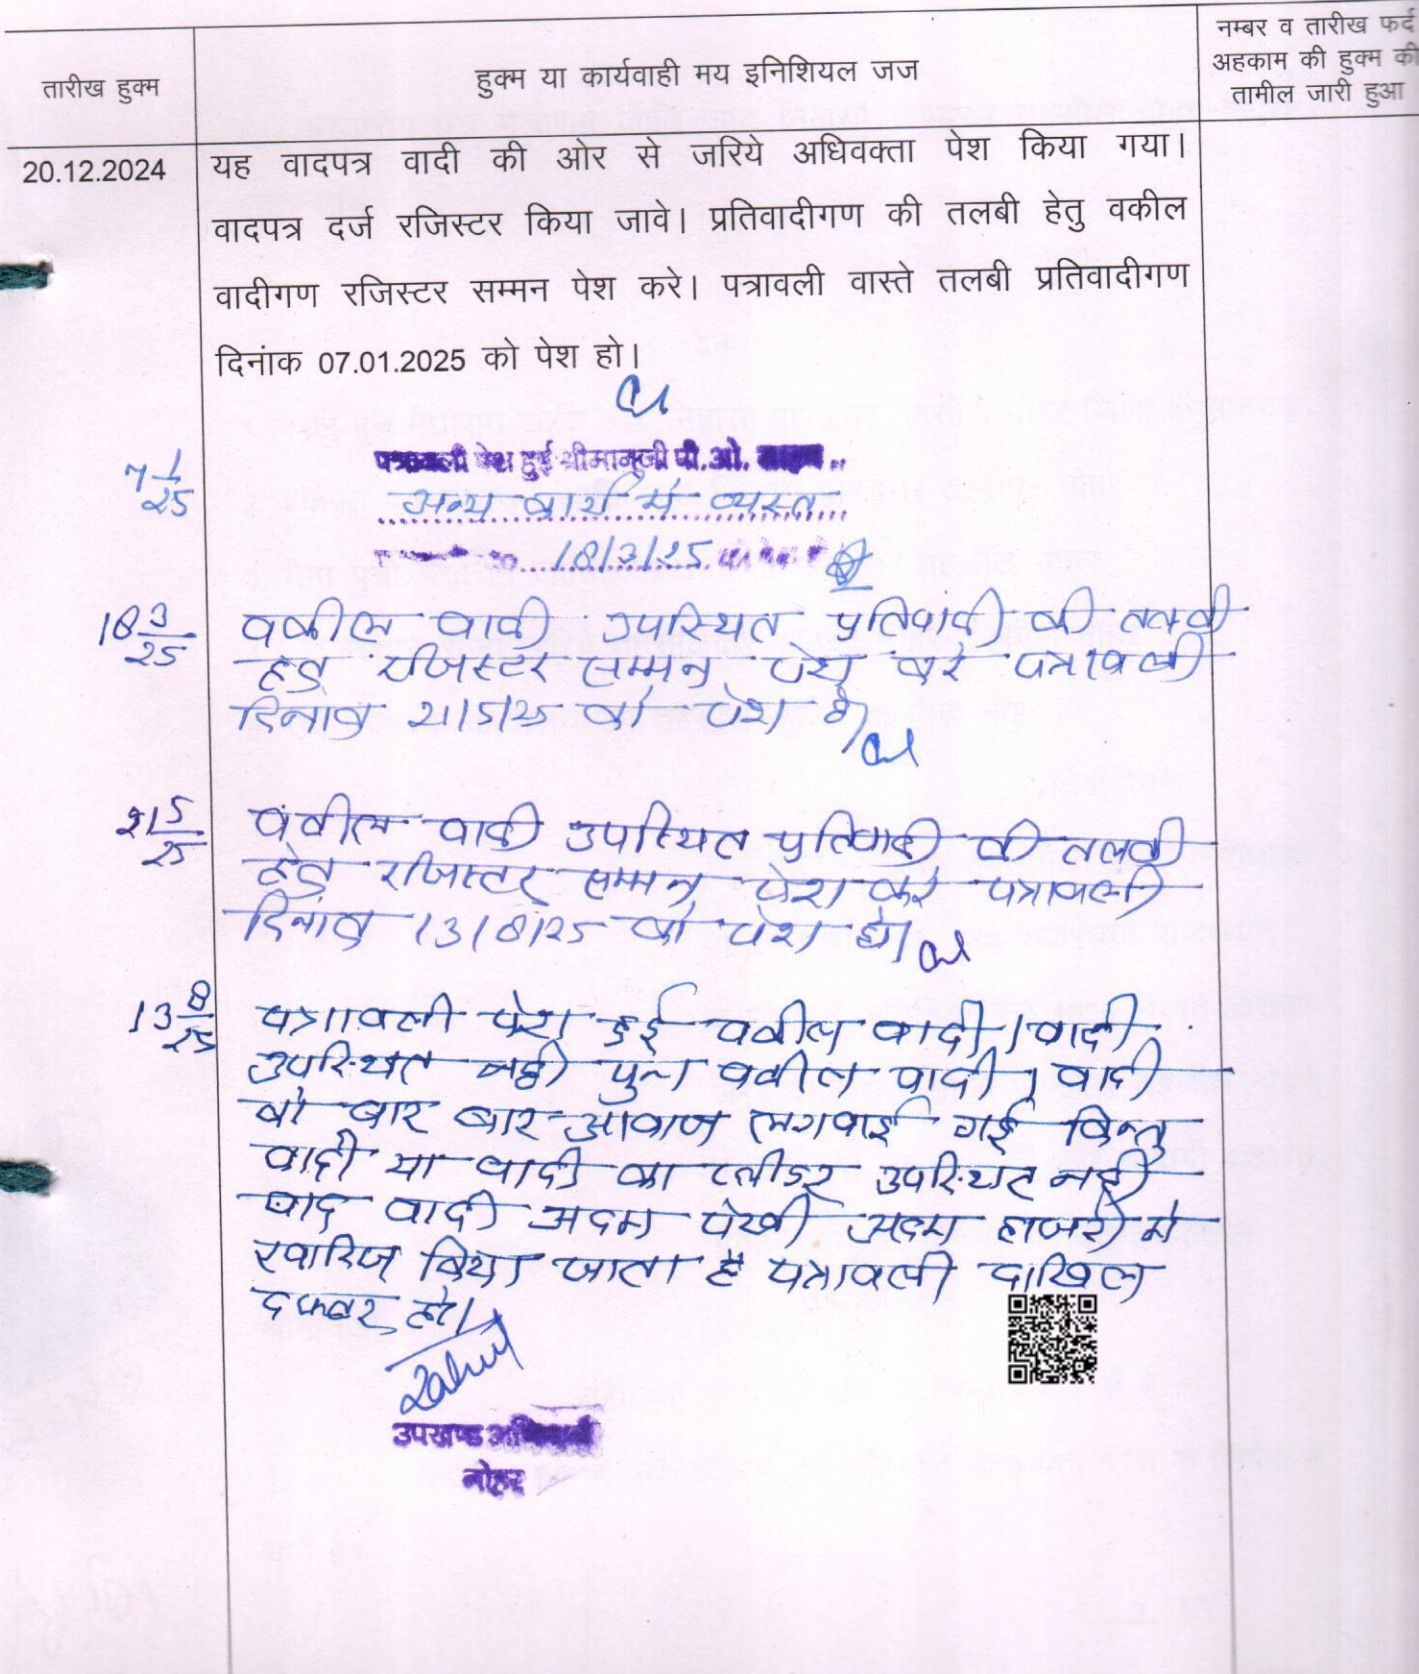 तारीख हुक्म
हुक्म या कार्यवाही मय इनिशियल जज
नम्बर व तारीख फर्द
अहकाम की हुक्म की
तामील जारी हुआ
20.12.2024
यह वादपत्र वादी की ओर से जरिये अधिवक्ता पेश किया गया।
वादपत्र दर्ज रजिस्टर किया जावे। प्रतिवादीगण की तलबी हेतु वकील
वादीगण रजिस्टर सम्मन पेश करे। पत्रावली वास्ते तलबी प्रतिवादीगण
दिनांक 07.01.2025 को पेश हो।
7 1/25
पत्रावली पेश हुई श्रीमानजी पी.ओ. साहब
अन्य कार्य मे व्यस्त
18/3/25 को पेश हो
18 3/25
वकील वादी उपस्थित प्रतिवादी की तलबी
हेतु रजिस्टर सम्मन पेश करे पत्रावली
दिनांक 21/5/25 को पेश हो
21 5/25
वकील वादी उपस्थित प्रतिवादी की तलबी
हेतु रजिस्टर सम्मन पेश करे पत्रावली
दिनांक 13/8/25 को पेश हो।
13 8/25
पत्रावली पेश हुई वकील वादी/वादी
उपस्थित नही पुनः वकील वादी/वादी
को बार बार आवाज लगवाई गई किन्तु
वादी या वादी का प्लीडर उपस्थित नही
वाद वादी अदम पेरवी अदम हाजरी मे
खारिज किया जाता है पत्रावली दाखिल
दफ्तर हो।
उपखण्ड अधिकारी
नोहर